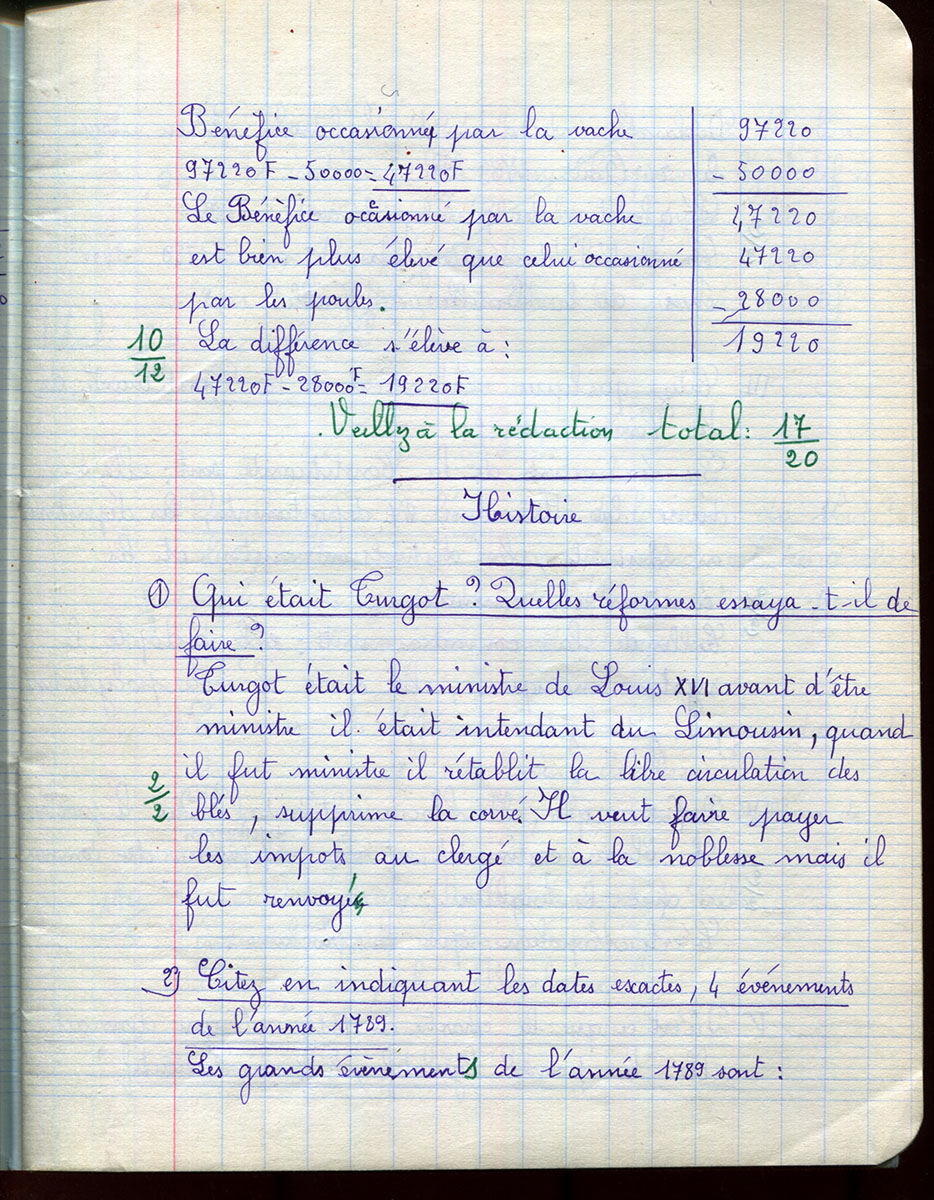 Bénéfice occasionné par la vache
97220F - 50000 = 47220F
Le Bénéfice occasionné par la vache
est bien plus élevé que celui occasionné
par les poules.
La différence s'élève à :
47220F - 28000F = 19220F
97220
- 50000
47220
47220
- 28000
19220
10/12
Veillez à la rédaction total : 17/20
Histoire
① Qui était Turgot ? Quelles réformes essaya-t-il de
faire ?
Turgot était le ministre de Louis XVI avant d'être
ministre il était intendant du Limousin, quand
il fut ministre il rétablit la libre circulation des
2/2
blés, supprime la corvé. Il veut faire payer
les impots au clergé et à la noblesse mais il
fut renvoyé
2) Citez en indiquant les dates exactes, 4 événements
de l'année 1789.
Les grands évènements de l'année 1789 sont :